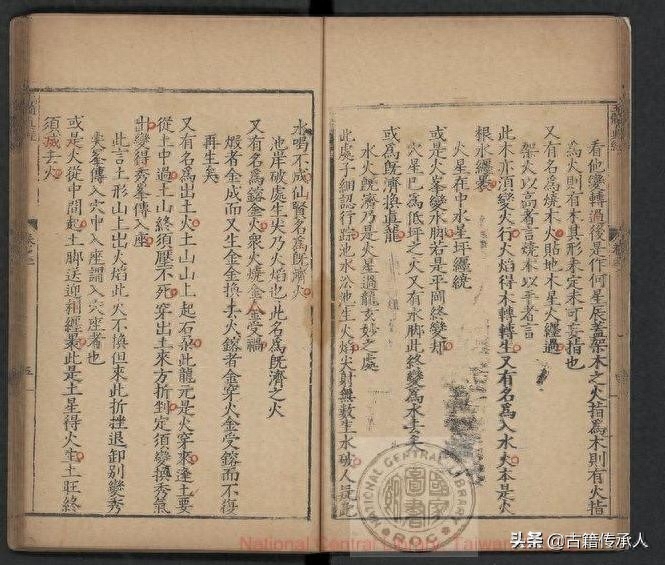 看他變轉過後是作何星辰蓋架木之火指為木則有火指
為火則有木其形未定未可妄指也
又有名為燒木火貼地木星火纏過
架火以高者言燒木以平者言
此木亦須變火行火焰得木轉轉生又有名為入水火本是火
根水纏裹
火星在中水星坪纏繞
或是火峯變水脚若是平岡終變却
穴星巴為低坪之火又有水脚此終變為水去
或為既濟換真龍
水火既濟乃是火星過龍玄妙之處
此處子細認行踪池水於池生火焰尖射無數生水破人
水唱不成仙賢名為既濟火
池岸破處生尖乃火焰也此名為既濟之火
又有名為鎔金火衆火燒金金受禍
煅者金成而又生金金換去火鎔者金穿火金受鎔而不復
再生矣
又有名為出土火土山山上起石此龍元是火穿來逢土要
從土中過土山終須壓不死穿出土來方折判定須變換秀氣
出變得秀峯傳入座
此言土形山上出火焰此火不慎但來此折挫退卸別變秀
尖峯傳入穴中入座謂入穴座者也
或是火從中間起土脚送迎利纏裹此是土星得火生土旺終
須滅去火
卷之二
五
National Central Library, Taiwan
NATIONAL CENTRAL LIBRARY
ROC
國家圖書館
头条 @古籍传承人